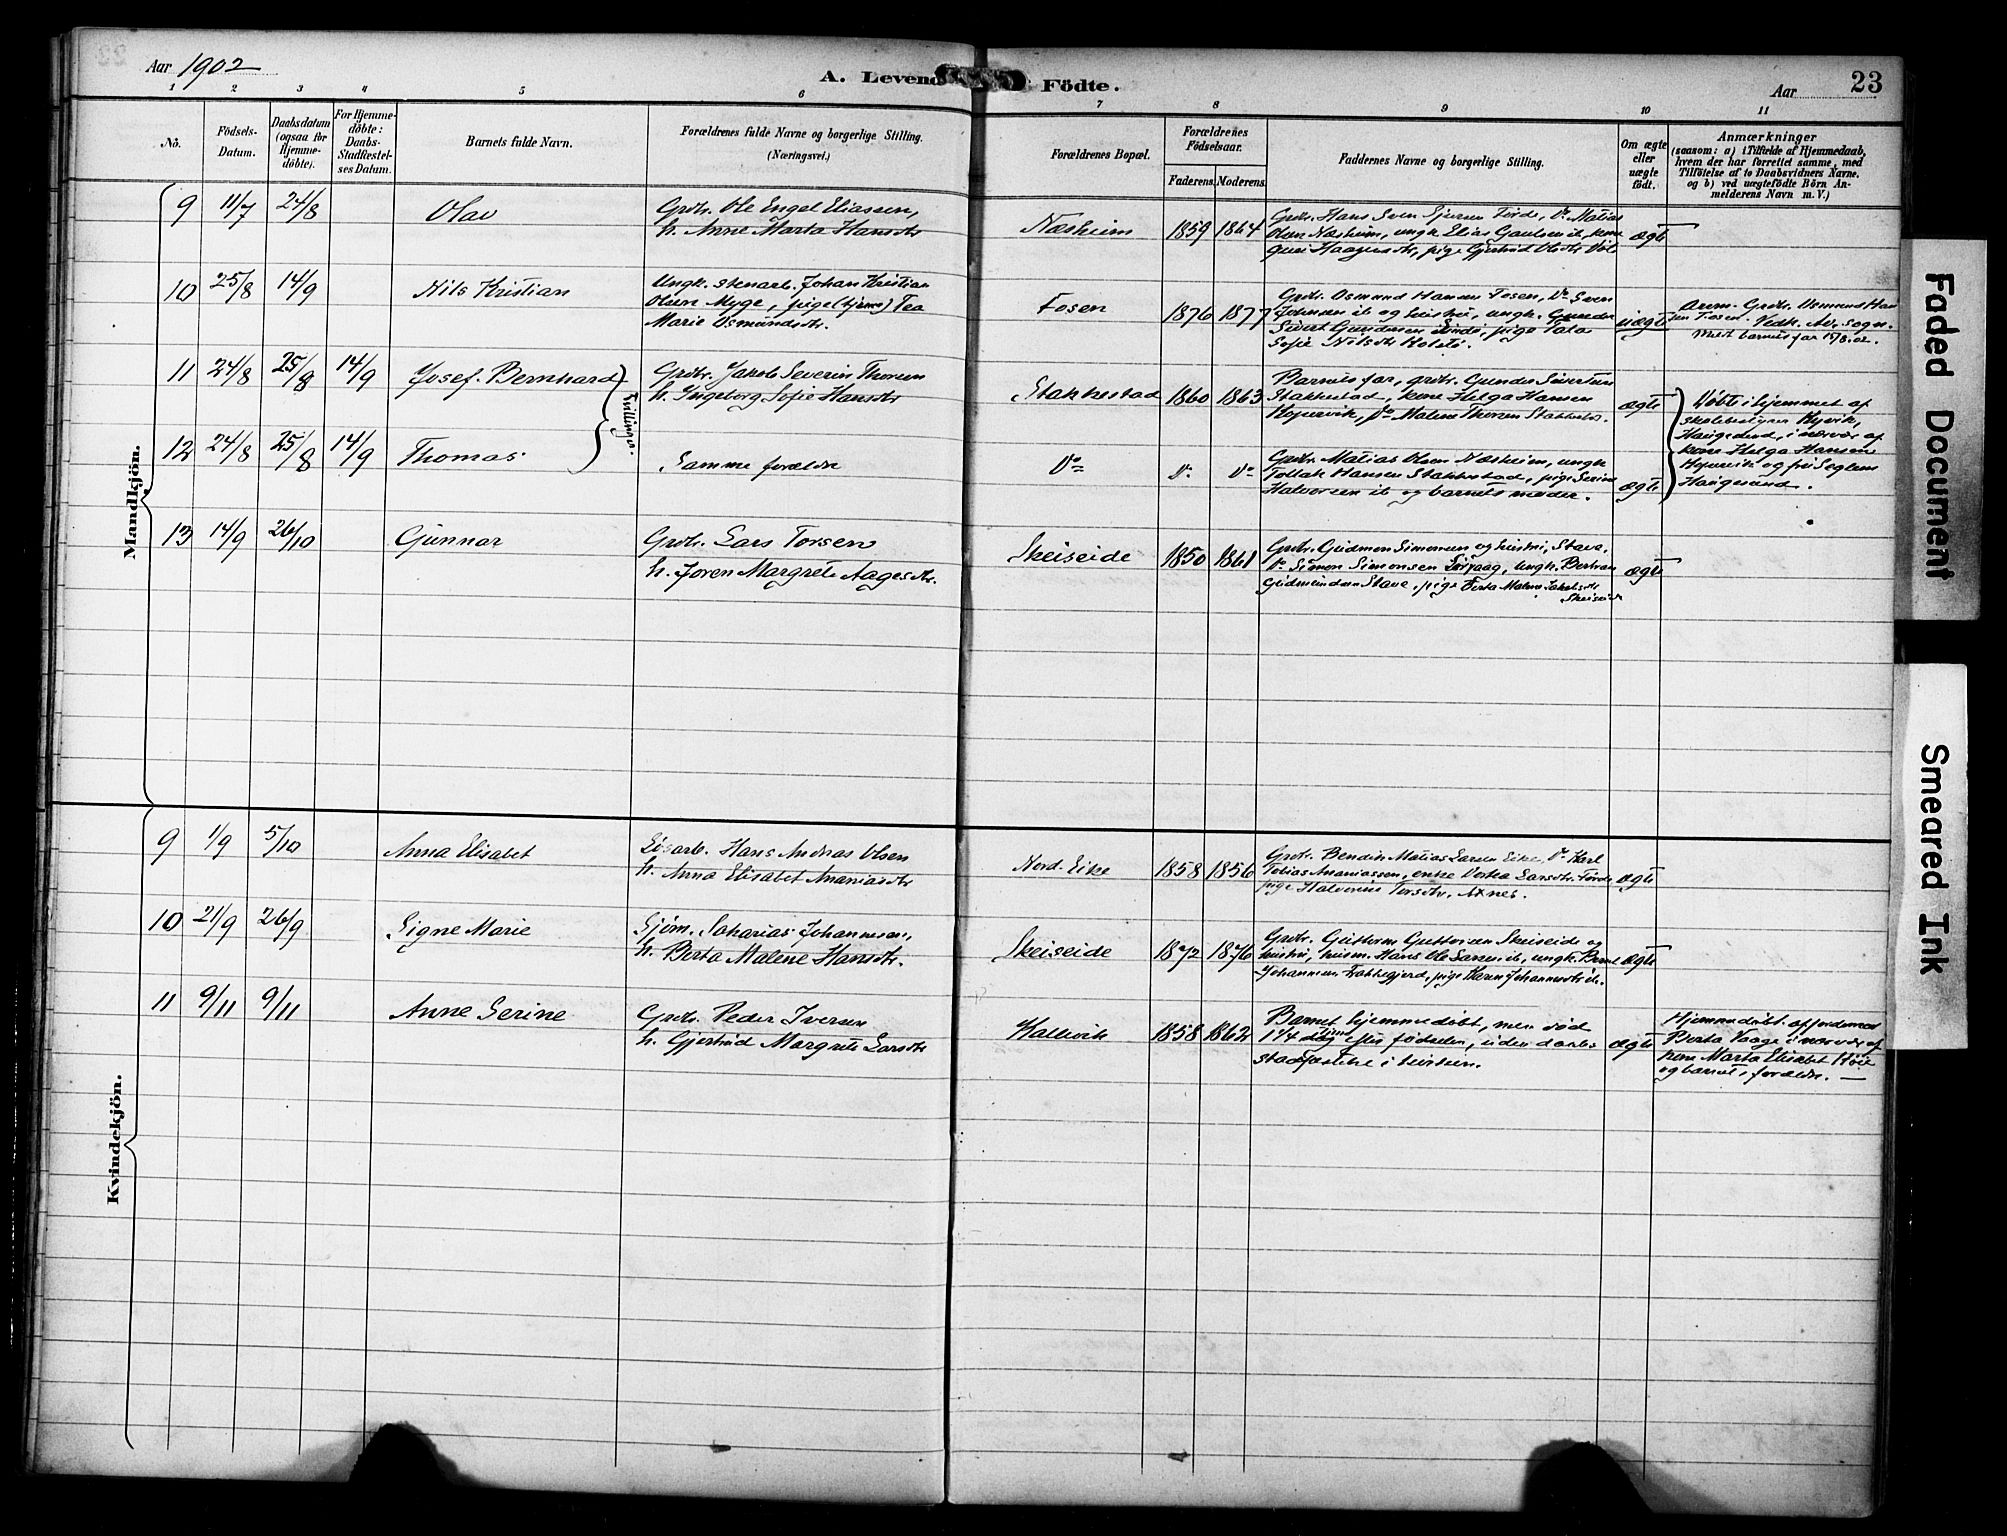 Aar 1902
A. Levende Födte.
Aar
23
1 2 3 4 5 6 7 8 9 10 11
No.
Födsels-Datum.
Daabsdatum (ogsaa for Hjemme-döbte).
For Hjemme-döbte: Daabs-Stadfæstel-ses Datum.
Barnets fulde Navn.
Forældrenes fulde Navne og borgerlige Stilling.
(Næringsvei.)
Forældrenes Bopæl.
Forældrenes Födselsaar.
Faderens. Moderens.
Faddernes Navne og borgerlige Stilling.
Om ægte eller uægte födt.
Anmærkninger
(saasom: a) i Tilfælde af Hjemmedaab,
hvem der har forrettet samme, med
Tilföielse af to Daabsvidners Navne.
og b) ved uægtefödte Börn An-
melderens Navn m. V.)
Mandkjön.
9 11/7 24/8 Olav
Grbr. Ole Engel Eliassen,
h. Anne Marta Hansdtr
Næsheim 1859 1864
Grbr. Hans Sven Førde, Do Matias
Olsen Næsheim, ungk. Elias ib, kone
pige Gjertrud Olsdtr
ægte
10 25/8 14/9 Nils Kristian
Ungk. stenarb. Johan Kristian
Olsen Myge, pige (hjemme) Tea
Marie Osmundsdtr.
Fosen 1876 1877
Grbr. Osmund Hansen Fosen, Do Sven
Johnsen ib og hustru, ungk.
Sivert Gundersen pige
Sofie Nilsdtr
uægte
Anm. Grbr. Osmund Han
sen Fosen. Vedk. Av. sogn.
Meldt barnets far
11 24/8 25/8 14/9 Josef Bernhard
Tvillinger.
Grbr. Jakob Severin Thorsen
h. Ingeborg Sofie Hansdtr
Stakkestad 1860 1863
Barnets far, grbr. Gunder Sivertsen
Stakkestad, kone Helga Hansen
Kopervik, Do Malene Thorsen Stakkestad.
ægte
Døbt i hjemmet af
skolebestyrer
Haugesund, i nærvær af
kone Helga Hansen
Kopervik og frk
Haugesund.
12 24/8 25/8 14/9 Thomas
Samme forældre
Do Do Do
Grbr. Matias Olsen Næsheim, ungk.
Tollak Hansen Stakkestad, pige Serine
Halvorsen ib og barnets moder.
ægte
13 14/9 26/10 Gunnar
Grbr. Lars Torsen
h. Joren Margrete Aagesdtr.
Skeiseide 1850 1861
Grbr. Gudmun Simonsen og hustru, Stave.
Do Simon Simonsen ungk. Bertran
Gudmundsen Stave, pige Berta Malene Jakobsdtr
Skeiseide
ægte
Kvindekjön.
9 1/9 5/10 Anna Elisabet
Løsarb. Hans Andreas Olsen
h. Anna Elisabet Ananiasdtr
Nord. Eike 1858 1856
Grbr. Bendik Matias Larsen Eike, Do Karl
Tobias Ananiassen, enke Dorthea Larsdtr. Førde
pige Halvorine Torsdtr. Axnes.
ægte
10 21/9 26/9 Signe Marie
Sjøm. Sakarias Johannesen,
h. Berta Malene Hansdtr.
Skeiseide 1872 1876
Grbr. Guttorm Guttormsen Skeiseide og
hustru, husm. Hans Ole Larsen ib, ungk. Bernt
Johannesen pige Karen Johannesdtr ib.
ægte
11 9/11 9/11 Anne Serine
Grbr. Peder Iversen
h. Gjertrud Margrete Larsdtr
Valevik 1858 1862
Barnet hjemmedøbt, men død
1 1/4 time efter fødselen, uden daabs
stadfæstelse i kirken.
ægte
Hjemmedøbt af jordemor
Berta Vaage i nærvær af
kone Marta Elisabet
og barnets forældre.
Faded Document
Smeared Ink